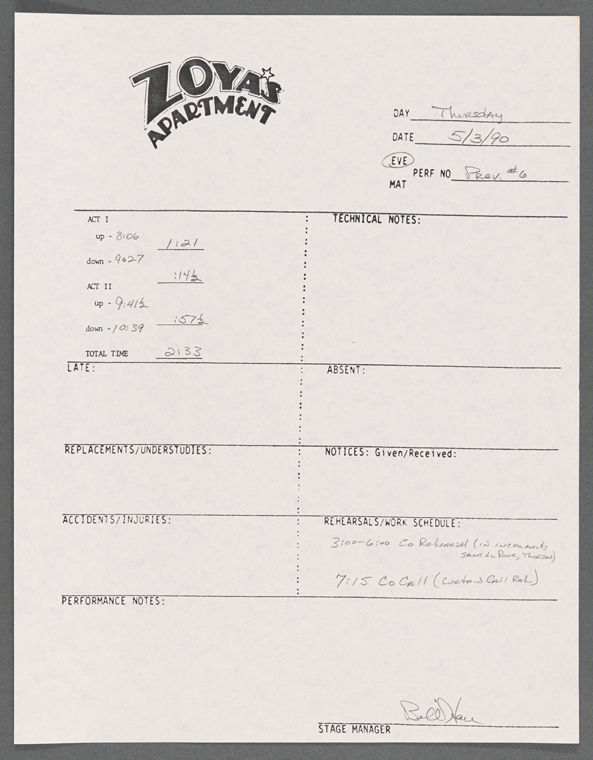 ZOYA'S
APARTMENT
DAY Thursday
DATE 5/3/90
EVE
PERF NO Prev. #6
MAT
ACT I
up - 8:06
1:21
down - 9:27
:14½
ACT II
up - 9:41½
:57½
down - 10:39
TOTAL TIME 2:33
TECHNICAL NOTES:
LATE:
ABSENT:
REPLACEMENTS/UNDERSTUDIES:
NOTICES: Given/Received:
ACCIDENTS/INJURIES:
REHEARSALS/WORK SCHEDULE:
3:00-6:00 Co Rehearsal (in increments,
7:15 Co Call (Curtain Call Reh.)
PERFORMANCE NOTES:
STAGE MANAGER